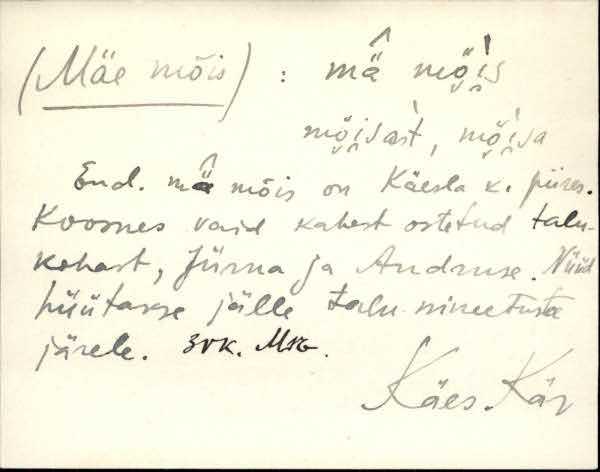 (Mäe mõis) : mä̂ mö̆is
mö̆isast, mö̆isa
End. mä̂ mõis on Käesla k. piires.
Koosnes vaid kahest ostetud talu-
kohast, Jürna ja Andruse. Nüüd
hüütakse jälle talu nimetuste
järele.
Käes. Kär